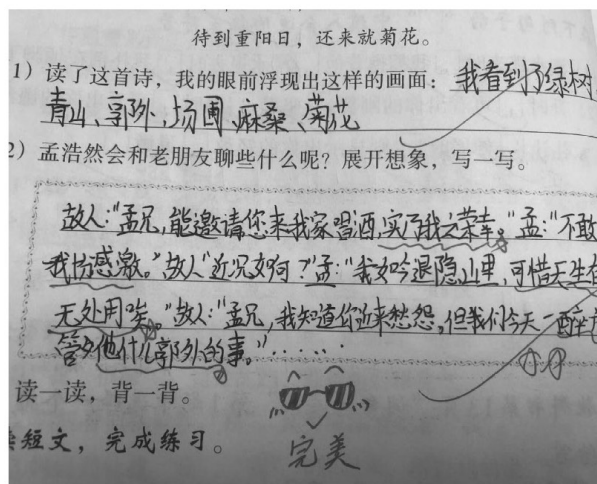 待到重阳日，还来就菊花。
1）读了这首诗，我的眼前浮现出这样的画面：我看到了绿树、
青山、郭外、场圃、麻桑、菊花
2）孟浩然会和老朋友聊些什么呢？展开想象，写一写。
故人："孟兄，能邀请您来我家喝酒，实乃我之荣幸。"孟："不敢
感激。"故人"近况如何？"孟："我如今退隐山里，可惜天生
无处用唉。"故人："孟兄，我知道你近来愁怨，但我们今天一醉方
管他什么郭外的事。"……
读一读，背一背。
短文，完成练习。
完美